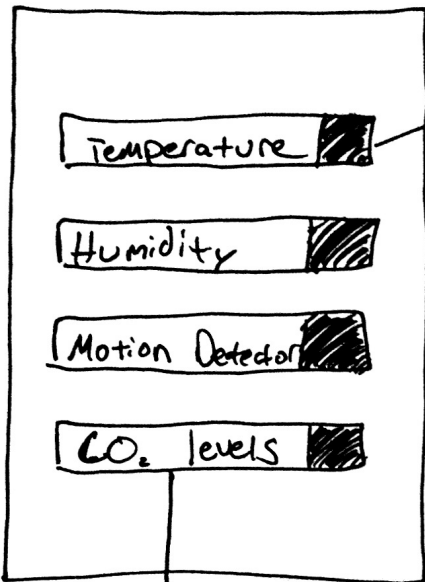 Temperature
Humidity
Motion Detector
CO₂ levels